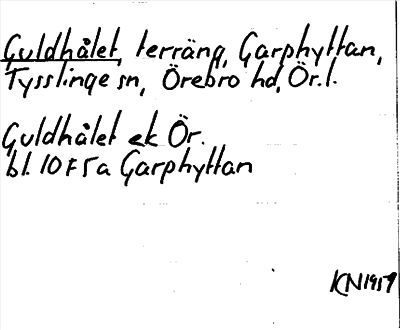 Guldhålet, terräng, Garphyttan,
Tysslinge sn, Örebro hd, Ör. l.
Guldhålet ek Ör.
bl. 10 F 5 a Garphyttan
KN 1959